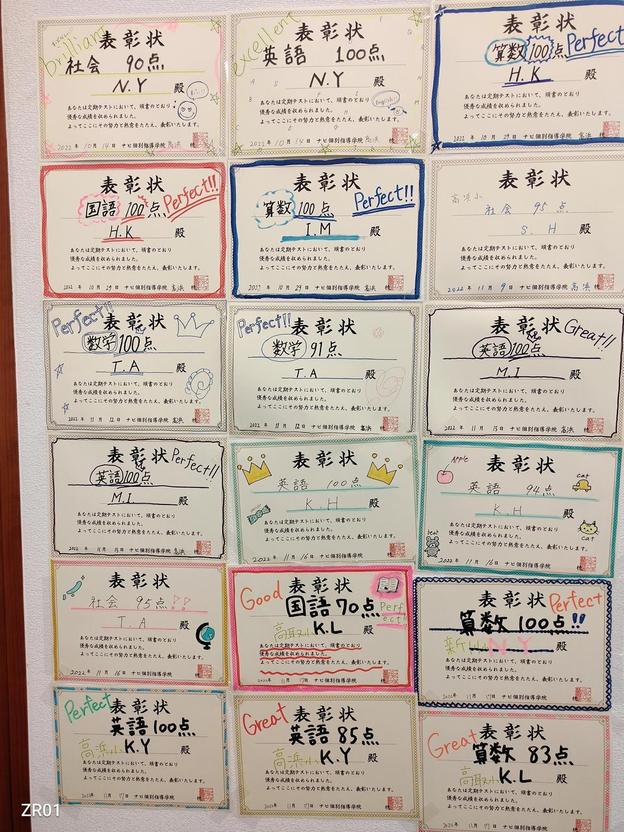 brilliant
表彰状
社会 90点
N.Y 殿
あなたは定期テストにおいて、頭書のとおり
優秀な成績を収められました。
よってここにその努力と熱意をたたえ、表彰いたします。
2022年 10月 14日 ナビ個別指導学院 高浜 校
excellent
表彰状
英語 100点
N.Y 殿
English!
あなたは定期テストにおいて、頭書のとおり
優秀な成績を収められました。
よってここにその努力と熱意をたたえ、表彰いたします。
2022年 10月 14日 ナビ個別指導学院 高浜 校
表彰状
算数 100点 Perfect
H.K 殿
あなたは定期テストにおいて、頭書のとおり
優秀な成績を収められました。
よってここにその努力と熱意をたたえ、表彰いたします。
2022年 10月 29日 ナビ個別指導学院 高浜 校
表彰状
国語 100点 Perfect!!
H.K 殿
あなたは定期テストにおいて、頭書のとおり
優秀な成績を収められました。
よってここにその努力と熱意をたたえ、表彰いたします。
2022年 10月 29日 ナビ個別指導学院 高浜 校
表彰状
算数 100点 Perfect!!
I.M 殿
あなたは定期テストにおいて、頭書のとおり
優秀な成績を収められました。
よってここにその努力と熱意をたたえ、表彰いたします。
2022年 10月 29日 ナビ個別指導学院 高浜 校
表彰状
高浜小
社会 95点
S.H 殿
あなたは定期テストにおいて、頭書のとおり
優秀な成績を収められました。
よってここにその努力と熱意をたたえ、表彰いたします。
2022年 11月 9日 ナビ個別指導学院 高浜 校
Perfect!!
表彰状
数学 100点
T.A 殿
あなたは定期テストにおいて、頭書のとおり
優秀な成績を収められました。
よってここにその努力と熱意をたたえ、表彰いたします。
2022年 11月 12日 ナビ個別指導学院 高浜 校
Perfect!!
表彰状
数学 91点
T.A 殿
あなたは定期テストにおいて、頭書のとおり
優秀な成績を収められました。
よってここにその努力と熱意をたたえ、表彰いたします。
2022年 11月 12日 ナビ個別指導学院 高浜 校
表彰状
Great!!
英語 100点
M.I 殿
あなたは定期テストにおいて、頭書のとおり
優秀な成績を収められました。
よってここにその努力と熱意をたたえ、表彰いたします。
2022年 11月 15日 ナビ個別指導学院 高浜 校
表彰状
Perfect!!
英語 100点
M.I 殿
あなたは定期テストにおいて、頭書のとおり
優秀な成績を収められました。
よってここにその努力と熱意をたたえ、表彰いたします。
2022年 11月 15日 ナビ個別指導学院 高浜 校
表彰状
英語 100点
K.H 殿
あなたは定期テストにおいて、頭書のとおり
優秀な成績を収められました。
よってここにその努力と熱意をたたえ、表彰いたします。
2022年 11月 16日 ナビ個別指導学院 校
表彰状
Apple
英語 94点
cat
K.H 殿
cat
あなたは定期テストにおいて、頭書のとおり
優秀な成績を収められました。
よってここにその努力と熱意をたたえ、表彰いたします。
2022年 11月 16日 ナビ個別指導学院 校
表彰状
社会 95点!!
T.A 殿
あなたは定期テストにおいて、頭書のとおり
優秀な成績を収められました。
よってここにその努力と熱意をたたえ、表彰いたします。
2022年 11月 16日 ナビ個別指導学院 校
Good
表彰状
国語 70点
K.L
Perfect!
あなたは定期テストにおいて、頭書のとおり
優秀な成績を収められました。
よってここにその努力と熱意をたたえ、表彰いたします。
11月 17日 ナビ個別指導学院 校
表彰状
Perfect
算数 100点!!
N.Y 殿
あなたは定期テストにおいて、頭書のとおり
優秀な成績を収められました。
よってここにその努力と熱意をたたえ、表彰いたします。
11月 17日 ナビ個別指導学院 校
Perfect
表彰状
英語 100点
高浜小 K.Y 殿
あなたは定期テストにおいて、頭書のとおり
優秀な成績を収められました。
よってここにその努力と熱意をたたえ、表彰いたします。
11月 17日 ナビ個別指導学院 校
Great
表彰状
英語 85点
高浜小 K.Y 殿
あなたは定期テストにおいて、頭書のとおり
優秀な成績を収められました。
よってここにその努力と熱意をたたえ、表彰いたします。
11月 17日 ナビ個別指導学院 校
Great
表彰状
算数 83点
K.L 殿
あなたは定期テストにおいて、頭書のとおり
優秀な成績を収められました。
よってここにその努力と熱意をたたえ、表彰いたします。
11月 17日 ナビ個別指導学院 校
ZR01